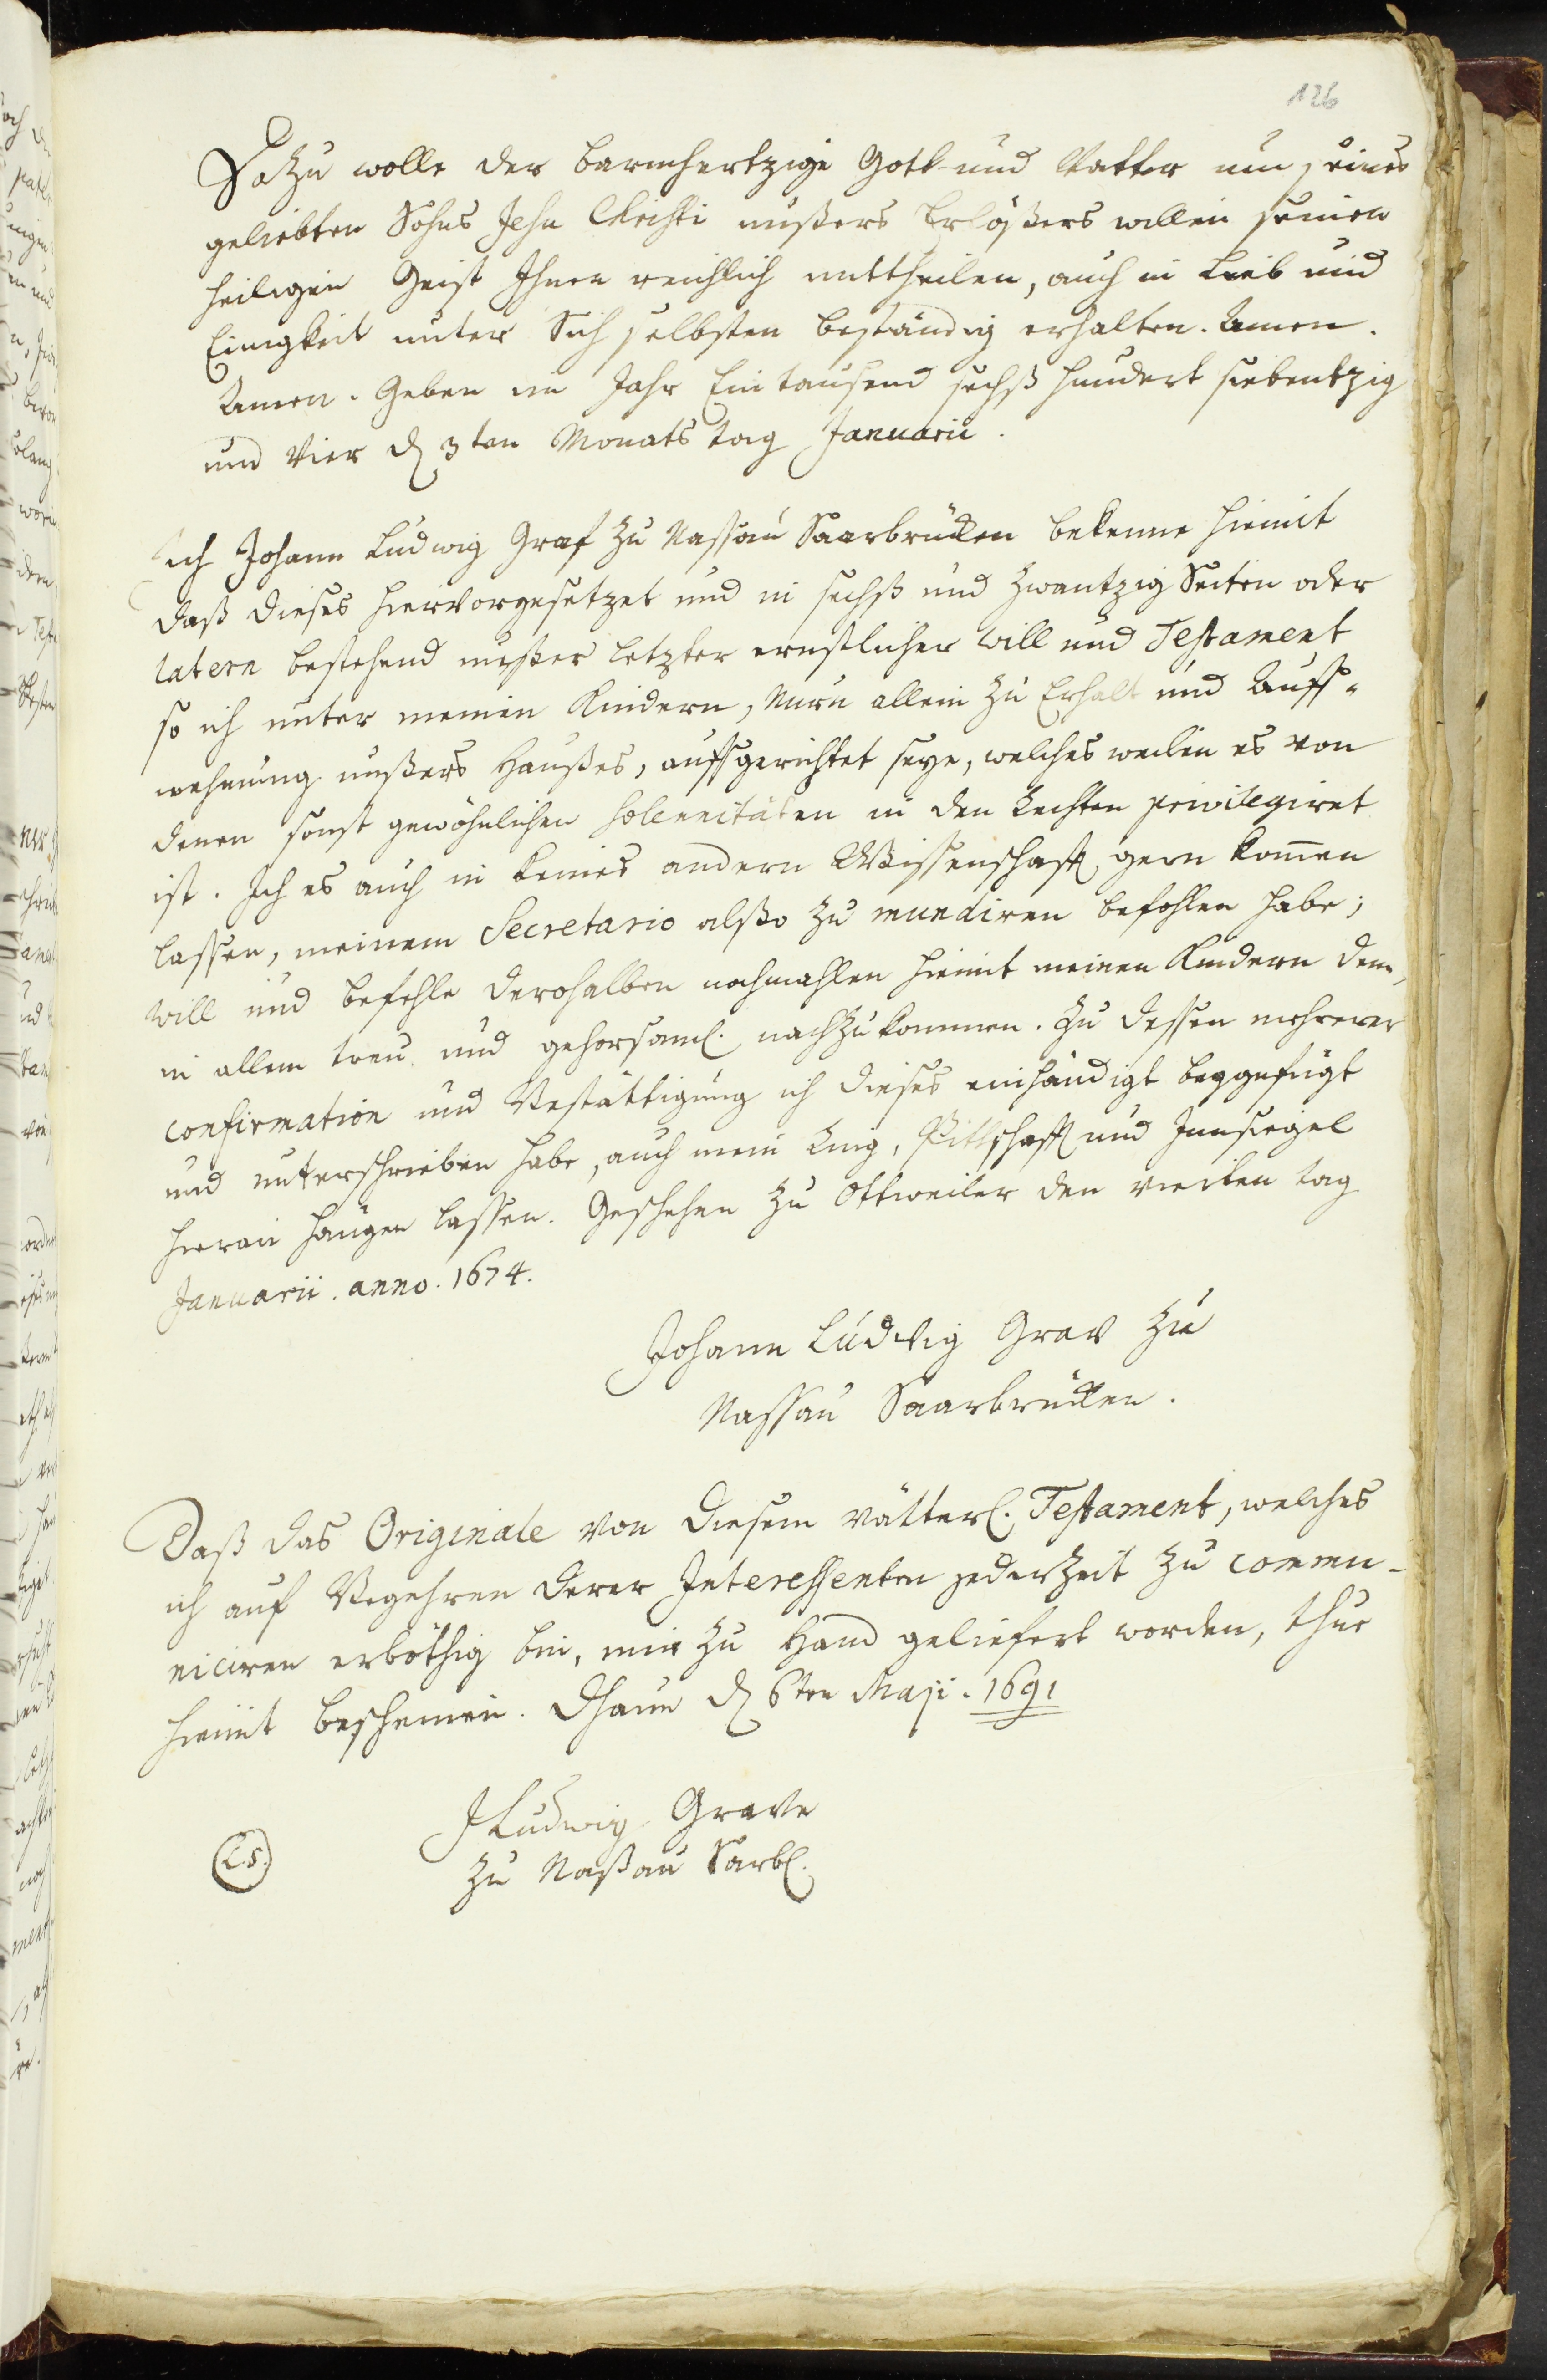 126
Dazu wolle der barmhertzige Gott und Vatter um seines
geliebten Sohns Jesu Christi unßers Erlößers willen seinen
heiligen Geist Ihnen reichlich mittheilen, auch in Lieb und
Einigkeit unter Sich selbsten beständig erhalten. Amen.
Amen. Geben im Jahr Eintausend sechß hundert siebentzig
und Vier d 3ten Monats tag Januarii.
Ich Johann Ludwig Graf zu Nassau Saarbrücken bekenne hiemit
daß dieses hiervorgesetzet und in sechß und zwantzig Seiten oder
latern bestehend unßer letzter ernstlicher Will und Testament
so ich unter meinen Kindern, nur allein zu Erhalt und Auff-
nehmung unßers Haußes, auffgerichtet seye, welches weilen es von
denen sonst gewöhnlichen solennitäten in den Rechten privilegiret
ist. Ich es auch in keines andern Wissenschafft gern kommen
lassen, meinem Secretario alßo zu mundiren befohlen habe;
Will und befehle derohalben nochmahlen hiemit meinen Kindern dem,
in allem treu und gehorsaml. nachzukommen. Zu dessen mehrerer
confirmation und Bestättigung ich dieses einhändigt beygefügt
und unterschrieben habe, auch mein Ring, Pittschafft und Innsiegel
hieran hangen lassen. Geschehen zu Ottweiler den vierten tag
Januarii. anno. 1674.
Johann Ludwig Grav zu
Nassau Saarbrücken.
Daß das Originale von diesem vätterl. Testament, welches
ich auf Begehren derer Interessenten jederzeit zu commu-
niciren erböthig bin, mir zu Hand geliefert worden, thue
hiemit bescheinen. Dhaun d 6ten Maji. 1691
J Ludwig Grave
zu Naßau Sarbl.
L.S.